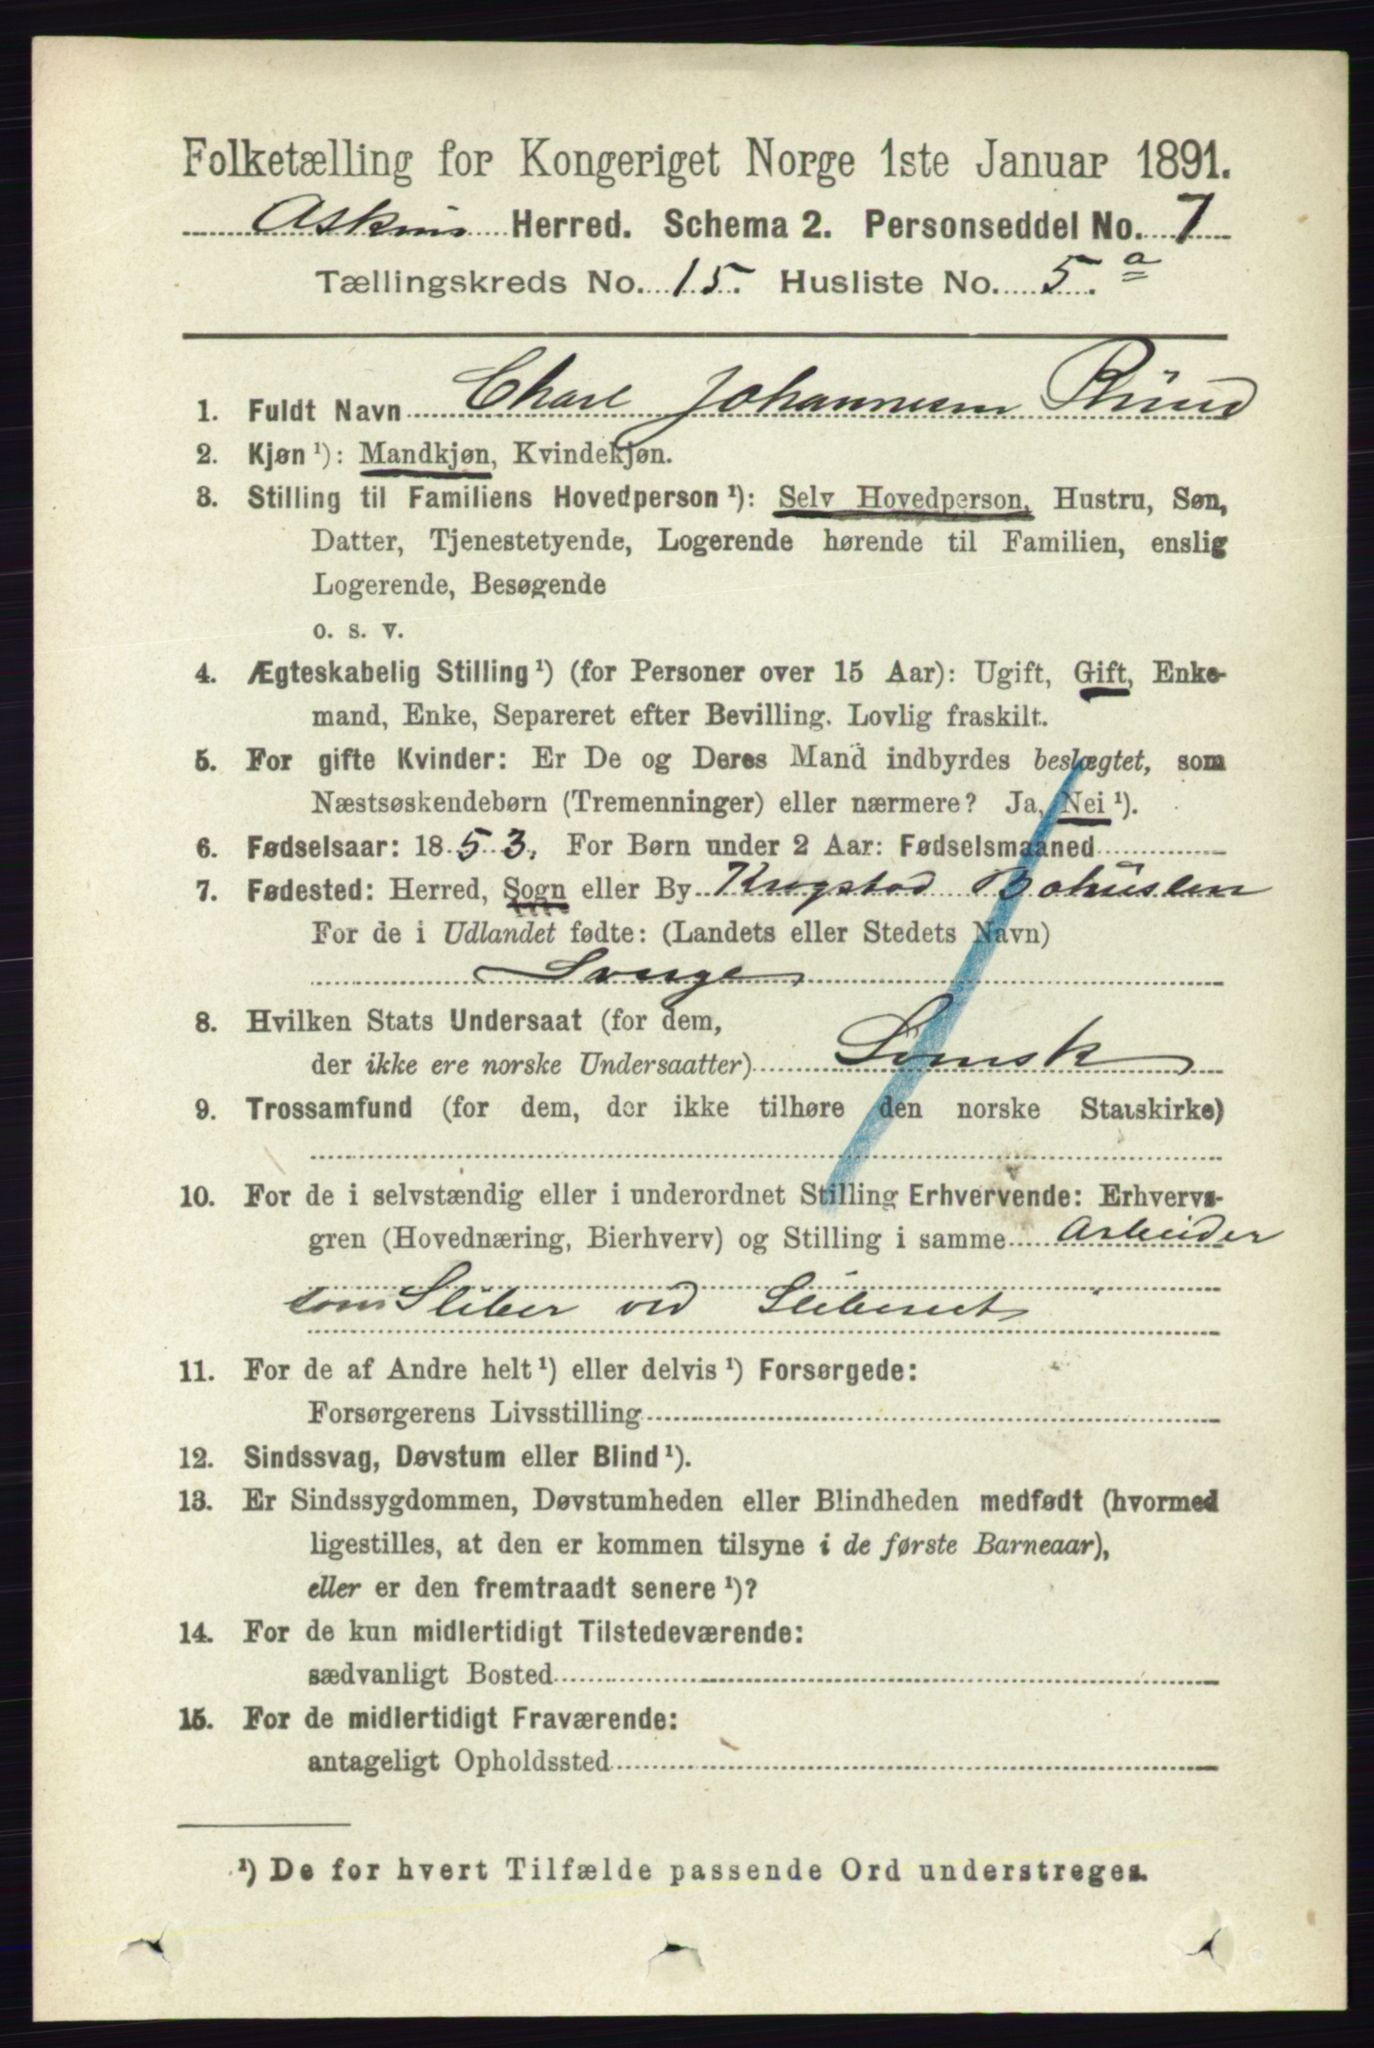 Folketælling for Kongeriget Norge 1ste Januar 1891.
Askim Herred. Schema 2. Personseddel No. 7
Tællingskreds No. 15. Husliste No. 5.a
1. Fuldt Navn Charl Johannesen
2. Kjøn ¹): Mandkjøn, Kvindekjøn.
3. Stilling til Familiens Hovedperson ¹): Selv Hovedperson, Hustru, Søn,
Datter, Tjenestetyende, Logerende hørende til Familien, enslig
Logerende, Besøgende
o. s. v.
4. Ægteskabelig Stilling ¹) (for Personer over 15 Aar): Ugift, Gift, Enke-
mand, Enke, Separeret efter Bevilling. Lovlig fraskilt.
5. For gifte Kvinder: Er De og Deres Mand indbyrdes beslægtet, som
Næstsøskendebørn (Tremenninger) eller nærmere? Ja, Nei ¹).
6. Fødselsaar: 1853. For Børn under 2 Aar: Fødselsmaaned
7. Fødested: Herred, Sogn eller By Krogstad Bohuslen
For de i Udlandet fødte: (Landets eller Stedets Navn)
Sverge
8. Hvilken Stats Undersaat (for dem,
der ikke ere norske Undersaatter) Svensk
9. Trossamfund (for dem, der ikke tilhøre den norske Statskirke)
10. For de i selvstændig eller i underordnet Stilling Erhvervende: Erhvervs-
gren (Hovednæring, Bierhverv) og Stilling i samme Arbeider
som Sliber ved Sliberiet
11. For de af Andre helt ¹) eller delvis ¹) Forsørgede:
Forsørgerens Livsstilling
12. Sindssvag, Døvstum eller Blind ¹).
13. Er Sindssygdommen, Døvstumheden eller Blindheden medfødt (hvormed
ligestilles, at den er kommen tilsyne i de første Barneaar),
eller er den fremtraadt senere ¹)?
14. For de kun midlertidigt Tilstedeværende:
sædvanligt Bosted
15. For de midlertidigt Fraværende:
antageligt Opholdssted
¹) De for hvert Tilfælde passende Ord understreges.